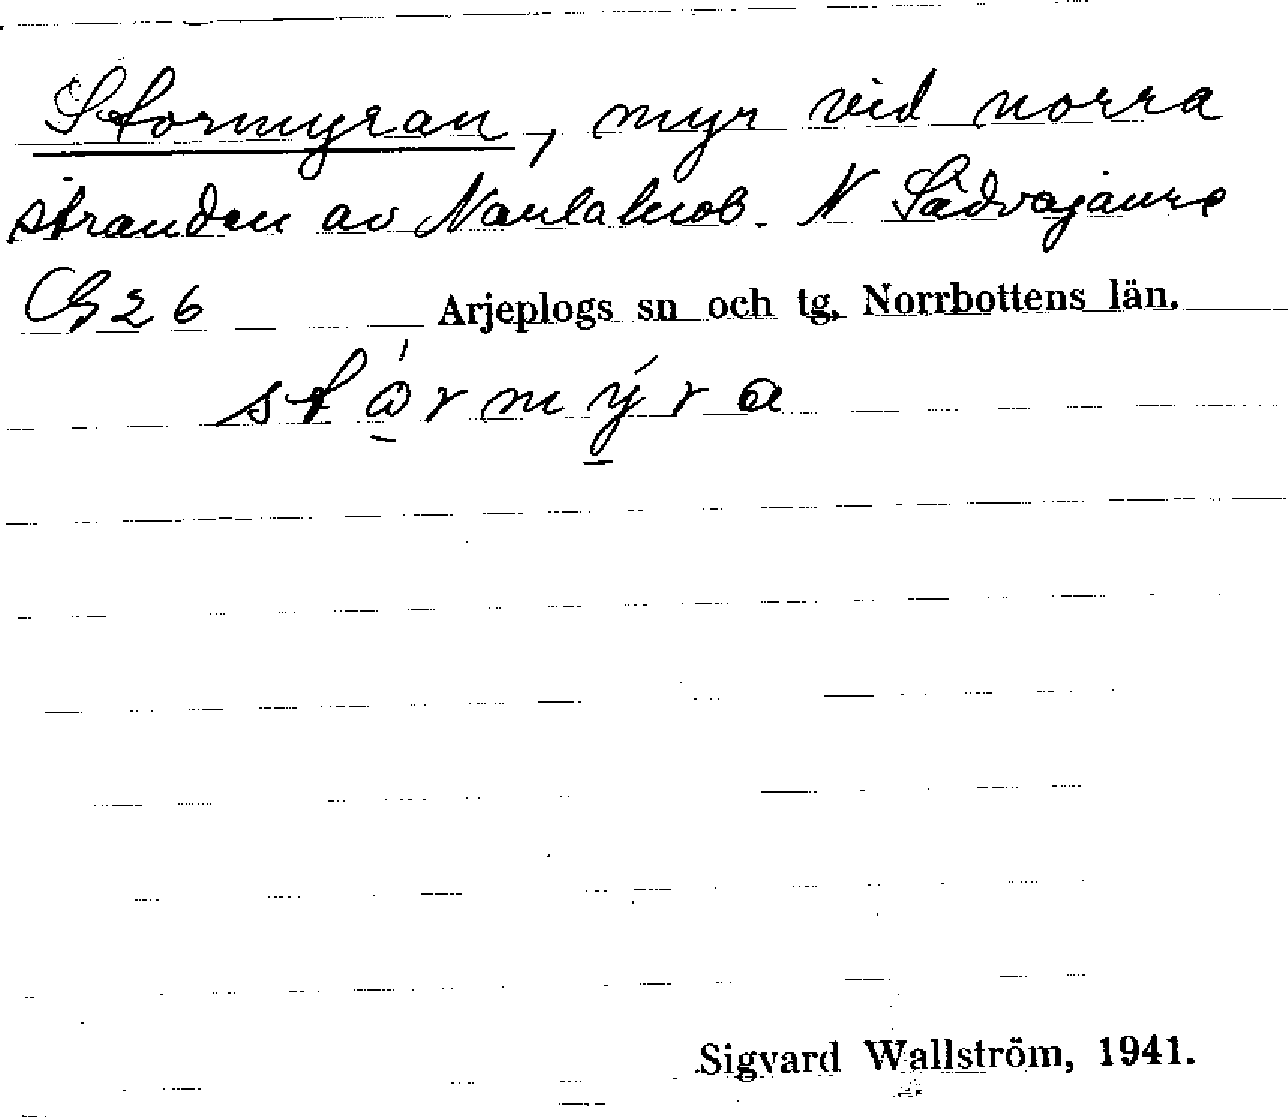 Stormyran, myr vid norra
stranden av Naulaluob. N Sädvajaure
G26 Arjeplogs sn och tg, Norrbottens län.
Sigvard Wallström, 1941.